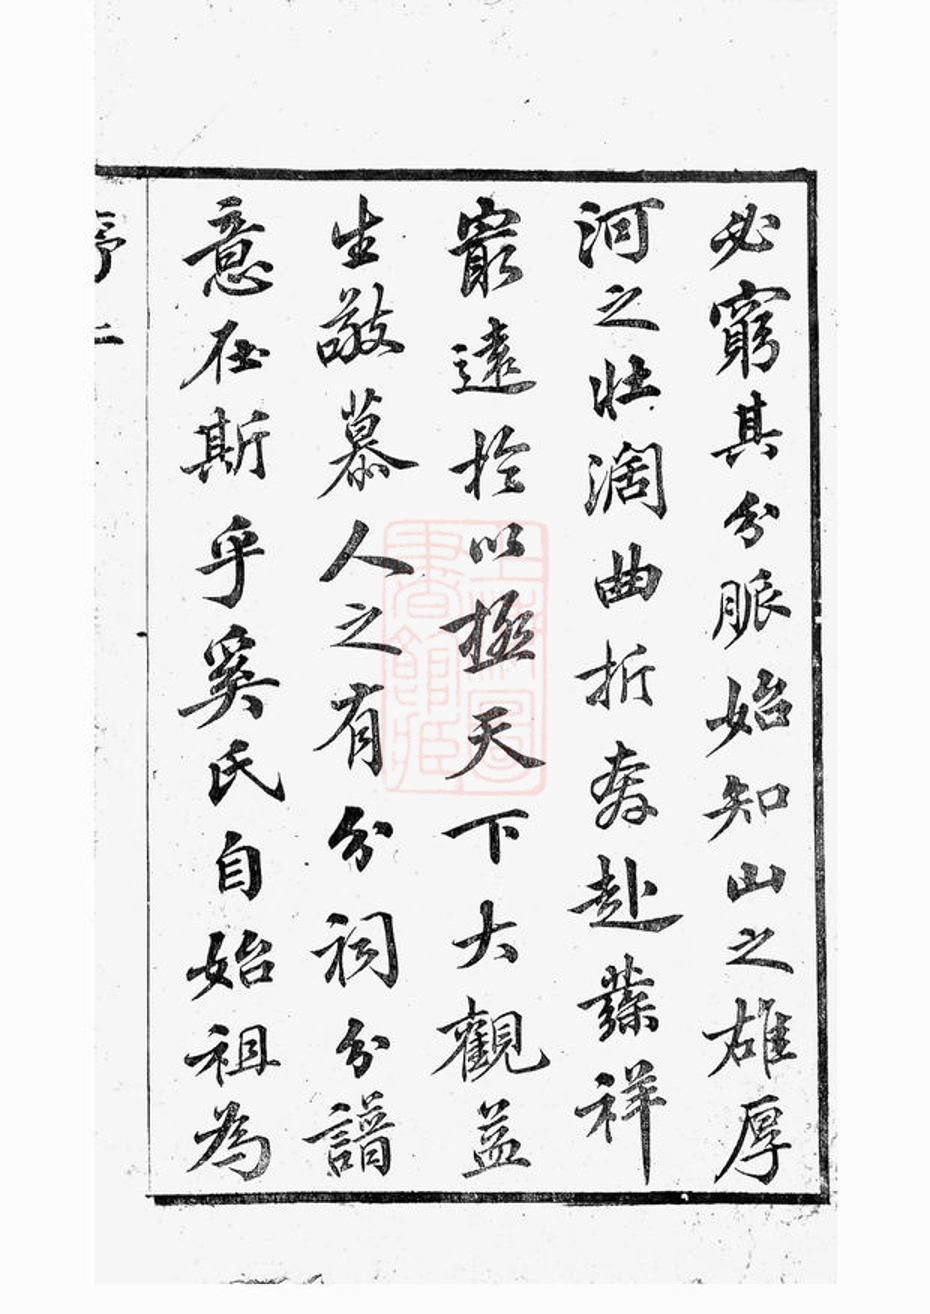 必窮其分脈始知山之雄厚
河之壯濶曲折奔赴祥
㝡遠於以極天下大觀益
生敬慕人之有分祠分譜
意在斯乎奚氏自始祖為
序 二
上海圖
書館藏